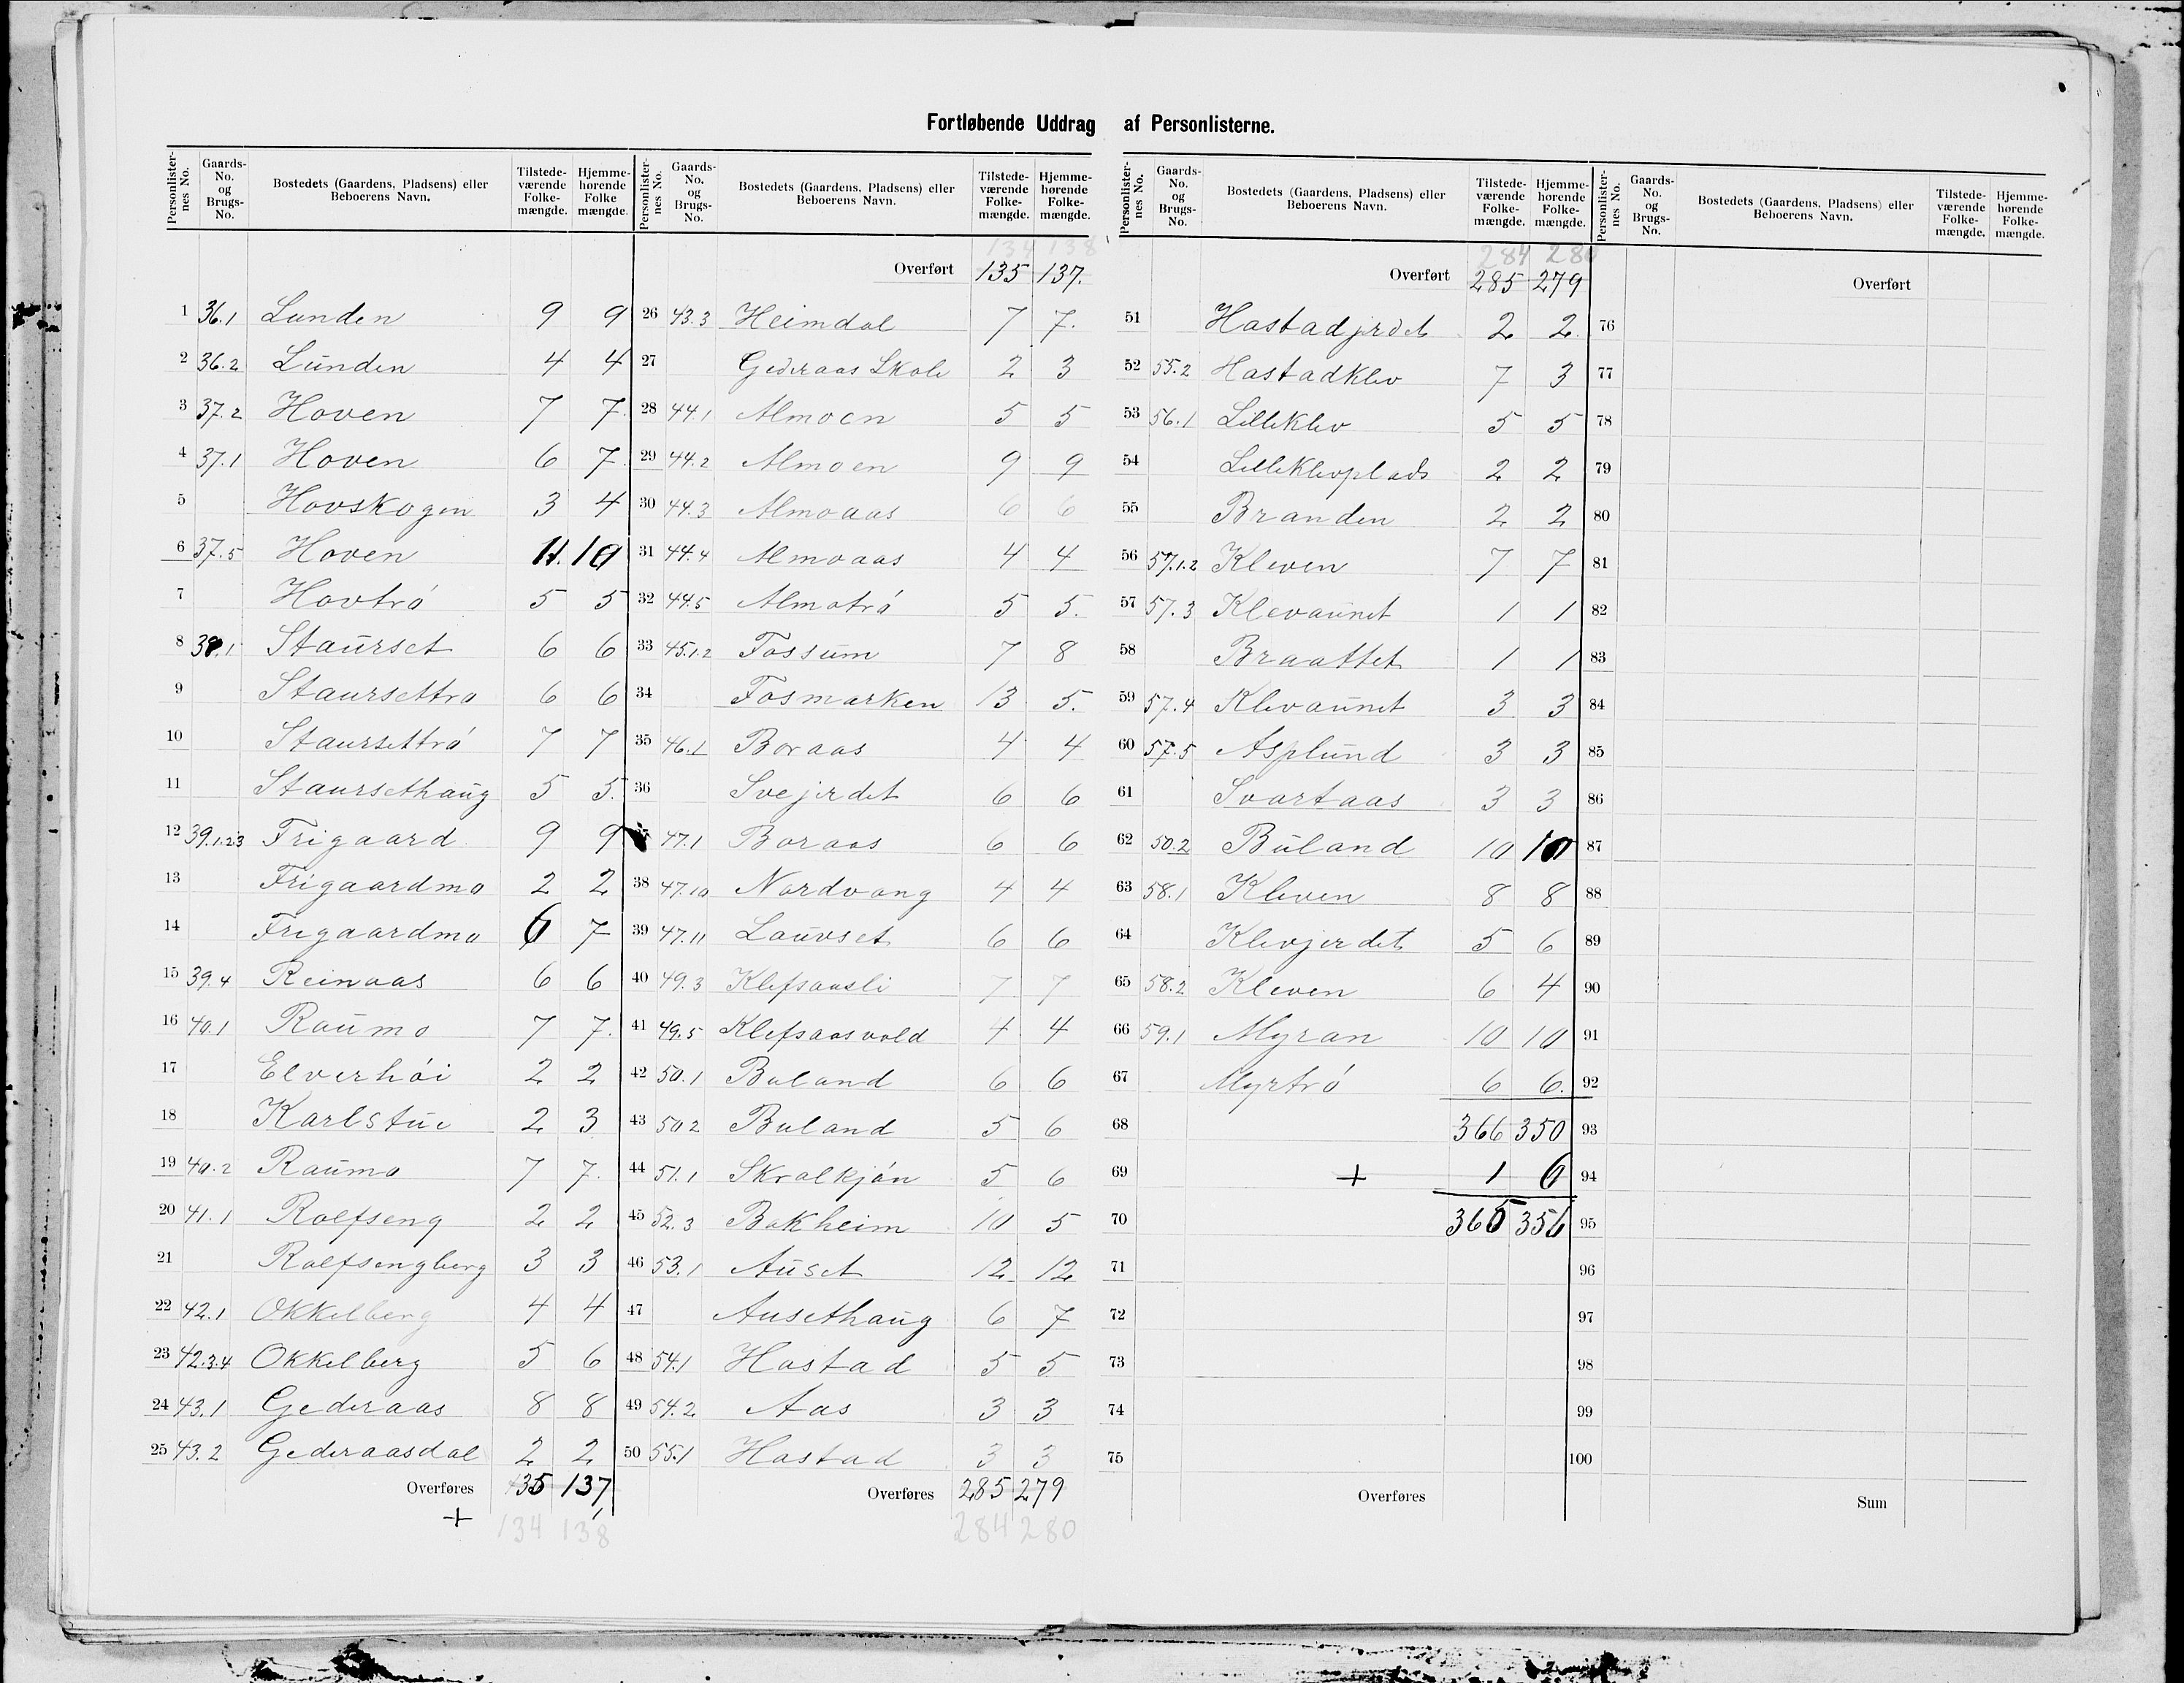 Fortløbende Uddrag af Personlisterne.
Personlister-nes No. Gaards-No. og Brugs-No. Bostedets (Gaardens, Pladsens) eller Beboerens Navn. Tilstede-værende Folke-mængde. Hjemme-hørende Folke mængde.
1 36.1 Lunden 9 9
2 36.2 Lunden 4 4
3 37.2 Hoven 7 7
4 37.1 Hoven 6 7
5 Hovskogen 3 4
6 37.5 Hoven 11. 10
7 Hovtrø 5 5
8 38.1 Staurset 6 6
9 Staursettrø 6 6
10 Staursettrø 7 7
11 Staursethaug 5 5.
12 39.1.2.3 Frigaard 9 9
13 Frigaardmo 2 2
14 Frigaardmo 6 7
15 39.4 Reinaas 6 6
16 40.1 Raumo 7 7.
17 Elverhøi 2 2
18 Karlstue 2 3
19 40.2 Raumo 7 7.
20 41.1 Rolfseng 2 2
21 Rolfsengberg 3 3
22 42.1 Okkelberg 4 4
23 42.3.4 Okkelberg 5 6
24 43.1 Gederaas 8 8
25 43.2 Gederaasdal 2 2
Overføres 135 137
+ 134 138
Personlister-nes No. Gaards-No. og Brugs-No. Bostedets (Gaardens, Pladsens) eller Beboerens Navn. Tilstede-værende Folke-mængde. Hjemme-hørende Folke-mængde.
134 138
Overført 135 137.
26 43.3 Heimdal 7 7.
27 Gederaas Skole 2 3
28 44.1 Almoen 5 5
29 44.2 Almoen 9 9
30 44.3 Almoaas 6 6
31 44.4 Almoaas 4 4
32 44.5 Almotrø 5 5.
33 45.1.2 Fossum 7 8
34 Fosmarken 13 5.
35 46.1 Boraas 4 4
36 Svejerdet 6 6
37 47.1 Boraas 6 6
38 47.10 Nordvang 4 4
39 47.11 Lauvset 6 6
40 49.3 Klefsaasli 7 7
41 49.5 Klefsaasvold 4 4
42 50.1 Buland 6 6
43 50.2 Buland 5 6
44 51.1 Skrolkjøn 5 6
45 52.3 Bakheim 10 5
46 53.1 Auset 12 12
47 Ausethaug 6 7
48 54.1 Hostad 5 5
49 54.2 Aas 3 3
50 55.1 Hastad 3 3
Overføres 285 279
284 280
Personlister-nes No. Gaards-No. og Brugs-No. Bostedets (Gaardens, Pladsens) eller Beboerens Navn. Tilstede-værende Folke-mængde. Hjemme-hørende Folke-mængde.
284 280
Overført 285 279
51 Hastadjerdet 2 2.
52 55.2 Hastadklev 7 3
53 56.1 Lilleklev 5 5
54 Lilleklevplads 2 2
55 Branden 2 2
56 57.1.2 Kleven 7 7
57 57.3 Klevaunet 1 1
58 Braattet 1 1
59 57.4 Klevaunet 3 3
60 57.5 Asplund 3 3
61 Svartaas 3 3
62 50.2 Buland 10 10
63 58.1 Kleven 8 8
64 Klevjerdet 5 6
65 58.2 Kleven 6 4
66 59.1 Myran 10 10
67 Myrtrø 6 6.
68 366 350
69 + 1 6
70 365 356
71
72
73
74
75
Overføres
Personlister-nes No. Gaards-No. og Brugs-No. Bostedets (Gaardens, Pladsens) eller Beboerens Navn. Tilstede-værende Folke-mængde. Hjemme-hørende Folke-mængde.
Overført
76
77
78
79
80
81
82
83
84
85
86
87
88
89
90
91
92
93
94
95
96
97
98
99
100
Sum